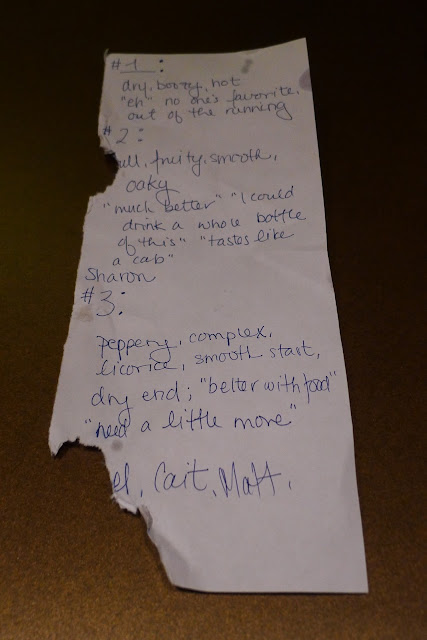 #1:
dry, boozy, hot
"eh" no one's favorite,
out of the running
#2:
ull, fruity, smooth,
oaky
"much better" "I could
drink a whole bottle
of this" "tastes like
a cab"
Sharon
#3:
peppery, complex,
licorice, smooth start,
dry end; "better with food"
"need a little more"
el, Cait, Matt,